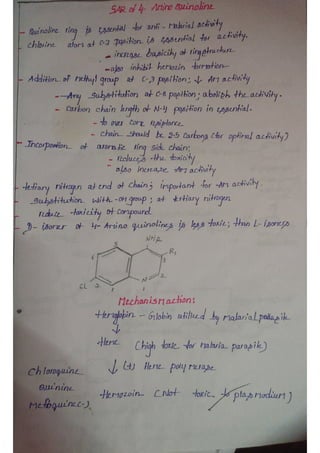 SAR of 4-Amino Quinoline
- Quinoline ring is essential for anti-Malarial activity
- chlorine atom at C-7 position is essential for activity.
- increase basicity of ring structure
- also inhibit hemozin formation
- Addition of methyl group at C-3 position; ↓ Am activity
- Any substitution at C-8 position; abolish the activity.
- Carbon chain length at N-4 position is essential.
- to over come resistance
- chain should be 2-5 carbons (for optimal activity)
- Incorporation of aromatic ring side chain;
- reduces the toxicity
- also increase Am activity
- tertiary nitrogen at end of chain; important for Am activity
- substitution with -OH group; at tertiary nitrogen
reduce toxicity of compound
- D-isomer of 4-Amino quinolines is less toxic; than L-isomers
NHR
5 4 R1
6 3
Cl 7 N 2
8 1
Mechanism action:
Hemglobin - Globin utilised by malarial parasite
↓
Heme (high toxic for malaria parasite)
Chloroquine ↓ (+) Heme polymerase
Quinine
Mefloquine (-). Hemozoin (Not toxic to plasmodium)